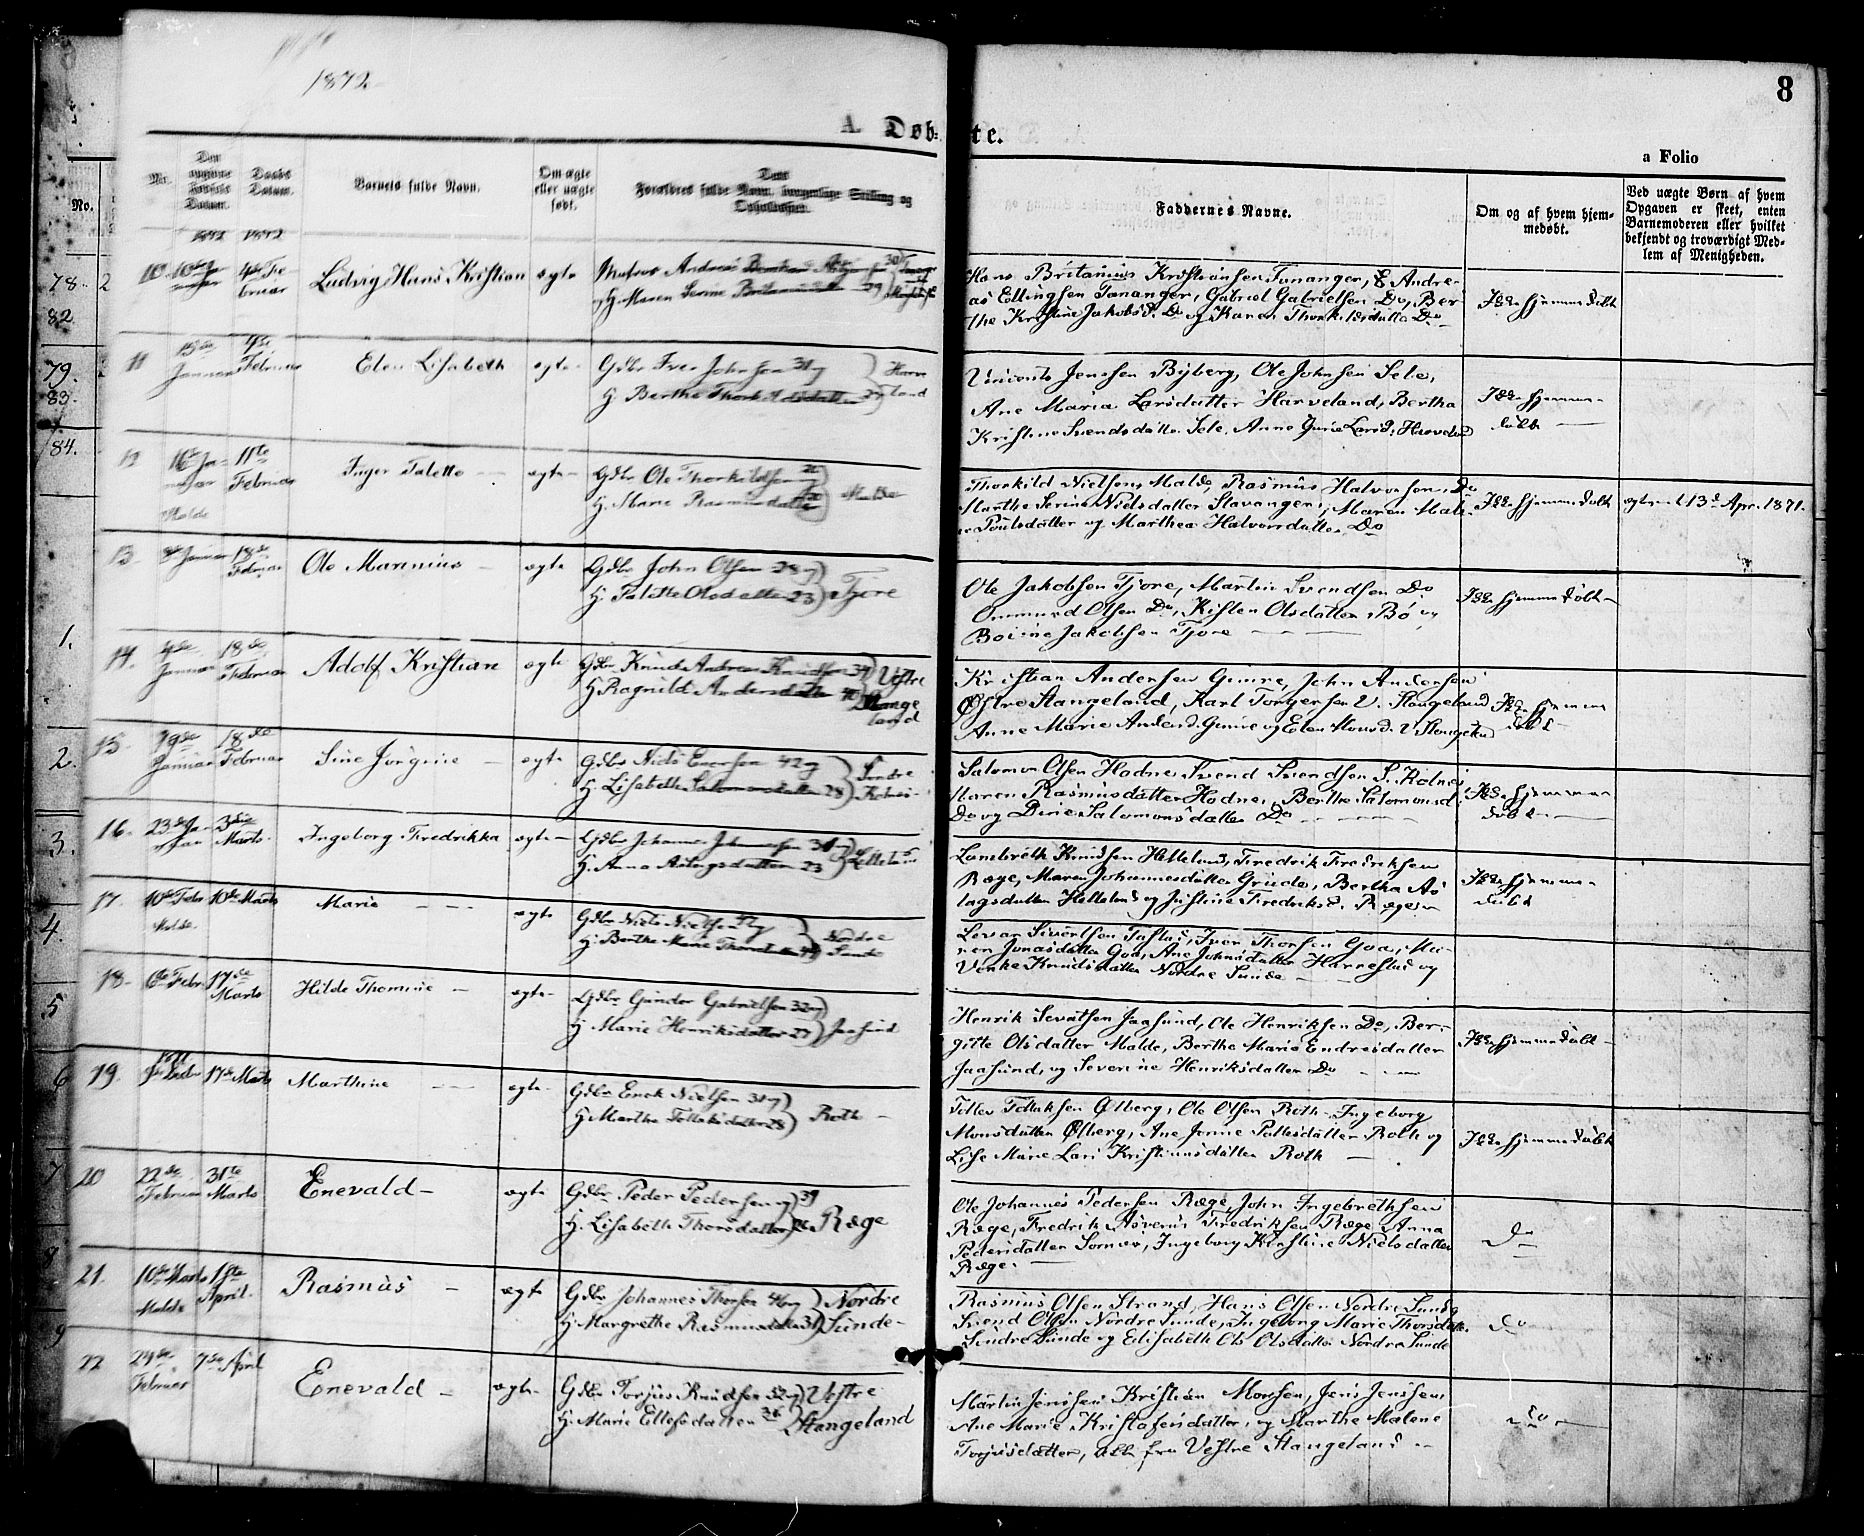 1872.
8
A. Døb=
te.
a Folio
No.
Nr.
Barnets fulde Navn.
Om ægte
eller uægte
født.
Faddernes Navne.
Om og af hvem hjem-
medøbt.
Ved uægte Børn af hvem
Opgaven er skeet, enten
Barnemoderen eller hvilket
bekjendt og troværdigt Med-
lem af Menigheden.
1872 1872
78.
82.
79.
83.
84.
1.
2.
3.
4.
5
6
7
8
9
10. Ludvig Hans Kristian ægte
Hans Britanius Kristiansen Tananger, Andre-
as Ellingsen Tananger, Gabriel Gabrielsen Do, Ber
the Kristine Jakobsd. Do og Karen Thorkildsdatter Do
Ikke hjemmedøbt
11 Januar Februar Elen Lisabeth ægte Gdbr Iver Johnsen 31 og
H. Berthe Thorkildsdatter Harve
land
Vincents Jensen Byberg, Ole Johnsen Sele,
Ane Maria Larsdatter Harveland, Bertha
Kristine Svendsdatter Sele, Anne Gurie Larsd. Harveland
Ikke hjemme-
døbt
12 16de Ja- 11te
Februar Inger Talette ægte Gdbr Ole Thorkildsen
H. Marie Rasmusdatter Malde
Thorkild Nielsen Malde, Rasmus Halvorsen Do
Marthe Serine Nielsdatter Stavanger, Maren Male-
ne Poulsdatter og Marthea Halvorsdatter Do
Ikke hjemmedøbt ægtev. 13d Apr. 1871.
13 8de Januar 18de
Februar Ole Marinius ægte Gdbr John Olsen 28 og
H. Talette Olsdatter 23 Tjore
Ole Jakobsen Tjore, Martin Svendsen Do
Ommund Olsen Do, Kisten Olsdatter Bø og
Boline Jakobsen Tjore
Ikke hjemmedøbt
14. 4de 18de
Januar Februar Adolf Kristian ægte Gdbr Knud Andreas Knudsen 34
H. Ragnild Andersdatter 40 Vestre
Stange
land
Kristian Andersen Gimre, John Andersen
Østre Stangeland, Karl Torgersen V. Stangeland
Anne Marie Andersd. Gimre og Elen Monsd. V. Stangeland
Ikke hjemme
døbt
15. 19de 18de
Januar Februar Sine Jørgine ægte Gdbr Niels Enersen 42 og
H. Lisabeth Salomonsdatter 28 Søndre
Kolnes
Salomon Olsen Hodne, Svend Svendsen S. Kolnes
Maren Rasmusdatter Hodne, Berthe Salomonsd.
Do og Dine Salomonsdatter Do
Ikke hjemme
døbt
16. 23de Ja- 3die
Marts Ingeborg Fredrikka ægte Gdbr Johannes Johannessen 31 og
H. Anna Aslagsdatter 23
Lambreth Knudsen Helleland, Fredrik Fredriksen
Ræge, Maren Johannesdatter Grude, Bertha As
lagsdatter Helleland og Justine Fredriksd. Ræge
Ikke hjemme-
døbt
17. 10de Febr 10de Marts
Malde. Marie ægte Gdbr Niels Nielsen
H. Berthe Marie Thorsdatter Nordre
Sunde
Levar Sivertsen Tastad, Iver Thorsen Goa,
Jonasdatter Goa, Ane Johnsdatter Harrestad og
Venke Knudsdatter Nordre Sunde
18. 6te Febr. 17de
Marts Hilde Thomine ægte Gdbr Gunder Gabrielsen 32 og
H. Marie Henriksdatter 27 Jaasund
Henrik Sevatsen Jaasund, Ole Henriksen Do, Ber-
gitte Olsdatter Malde, Berthe Marie Endresdatter
Jaasund, og Severine Henriksdatter Do
Ikke hjemmedøbt
19. 17de Marts Marthine ægte Gdbr Enok Nielsen 31 og
H. Marthe Tollaksdatter 28 Roth
Toller Tollaksen Ølberg, Ole Olsen Roth, Ingeborg
Monsdatter Ølberg, Ane Jonne Pallesdatter Roth og
Lise Marie Lari Kristiansdatter Roth
Ikke hjemmedøbt
20 22de 31te
Februar Marts Enevald ægte Gdbr Peder Pedersen og 39
H. Lisabeth Thorsdatter Ræge
Ole Johannes Pedersen Ræge, John Ingebrethsen
Ræge, Fredrik Asverus Fredriksen Ræge, Anna
Pedersdatter Sømme, Ingeborg Kirstine Nielsdatter
Ræge.
Do
21. 10de Marts 1ste
Malde April. Rasmus ægte Gdbr Johannes Thorsen 46 og
H. Margrethe Rasmusdatter 31 Nordre
Sunde
Rasmus Olsen Strand, Hans Olsen Nordre Sunde
Svend Olsen Nordre Sunde, Ingeborg Marie Thorsdatter
Søndre Sunde og Elisabeth Ols Olsdatter Nordre Sunde
Do
22 24de 7de April
Februar Enevald ægte Gdbr Torjus Knudsen 52 og
H. Marie Ellefsdatter 36 Vestre
Stangeland
Martin Jensen, Kristian Monsen, Jens Jensen,
Ane Marie Kristofersdatter, og Marthe Malene
Torjusdatter, alle fra Vestre Stangeland
Do